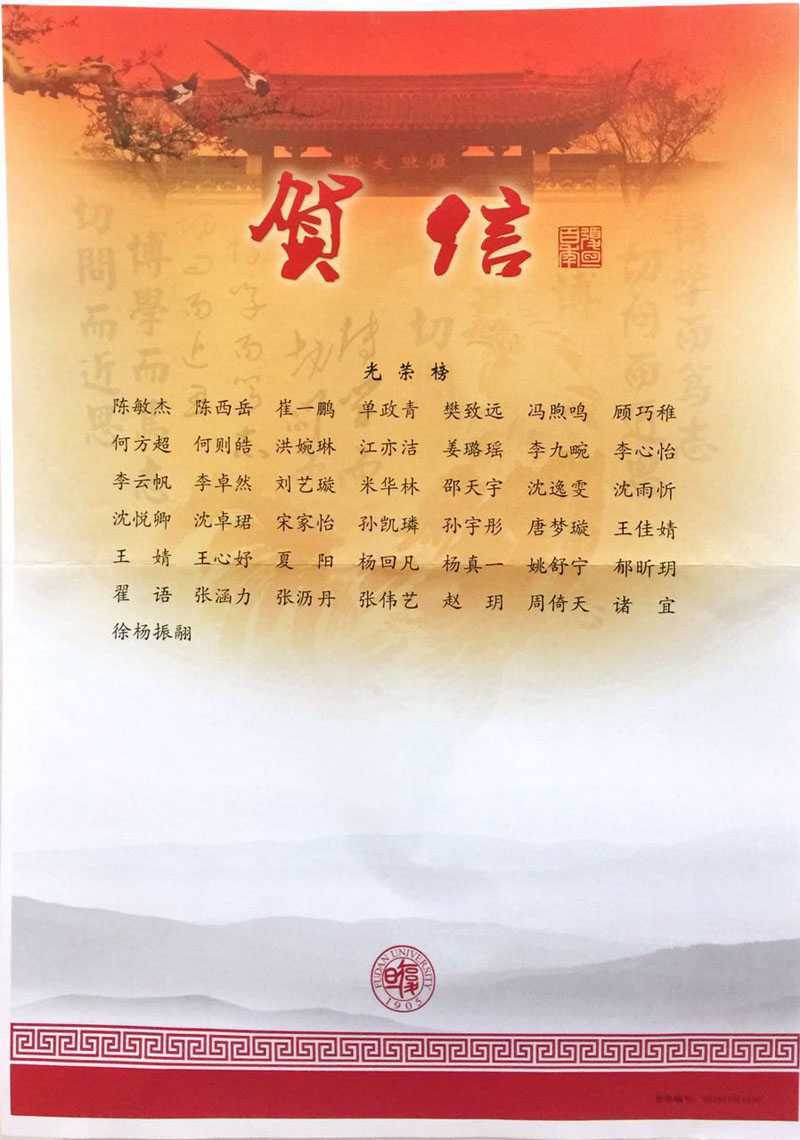 復旦大學
賀信
光荣榜
陈敏杰 陈西岳 崔一鹏 单政青 樊致远 冯煦鸣 顾巧稚
何方超 何则皓 洪婉琳 江亦洁 姜璐瑶 李九畹 李心怡
李云帆 李卓然 刘艺璇 米华林 邵天宇 沈逸雯 沈雨忻
沈悦卿 沈卓珺 宋家怡 孙凯璘 孙宇彤 唐梦璇 王佳婧
王婧 王心妤 夏阳 杨回凡 杨真一 姚舒宁 郁昕玥
翟语 张涵力 张沥丹 张伟艺 赵玥 周倚天 诸宜
徐杨振翮
切問而近思
博學而
切问而
博学而笃志
FUDAN UNIVERSITY
復旦
1905